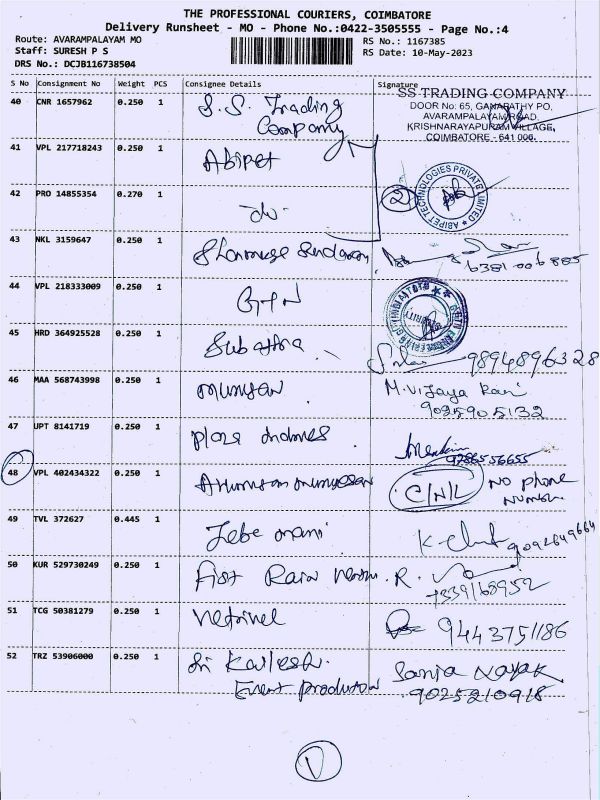 THE PROFESSIONAL COURIERS, COIMBATORE
Delivery Runsheet - MO - Phone No.:0422-3505555 - Page No.:4
Route: AVARAMPALAYAM MO
Staff: SURESH P S
DRS No.: DCJB116738504
RS No.: 1167385
RS Date: 10-May-2023
S No Consignment No Weight PCS Consignee Details Signature
40 CNR 1657962 0.250 1 S.S. Trading
Company
SS TRADING COMPANY
DOOR No: 65, GANAPATHY PO,
AVARAMPALAYAM ROAD,
KRISHNARAYAPURAM VILLAGE,
COIMBATORE - 641 006.
41 VPL 217718243 0.250 1 Abipet
42 PRO 14855354 0.270 1 do. 2
ABIPET TECHNOLOGIES PRIVATE LIMITED
43 NKL 3159647 0.250 1 6381006885
44 VPL 218333009 0.250 1
45 HRD 364925528 0.250 1 9894896328
46 MAA 568743998 0.250 1 Murugan M. Vijaya Rani
9025905132
47 UPT 8141719 0.250 1 9786556655
48 VPL 402434322 0.250 1 C/N/L No phone
Number
49 TVL 372627 0.445 1 Jebe mani 9092649664
50 KUR 529730249 0.250 1 First Rain R.
7339168952
51 TCG 50381279 0.250 1 Vetrivel 9443751186
52 TRZ 53906000 0.250 1 Sri Kailesh Sanja Nayak
Event production 9025210918